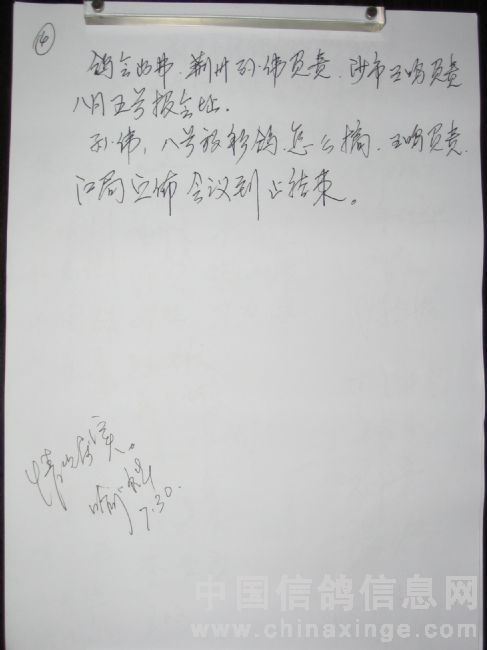 ④
鸽会 荆州孙伟负责.沙市王鸣负责
八月五号报会址.
孙伟,八号彩鸽怎么搞.王鸣负责.
江局宣佈会议到止结束。
情况属实。
7.30.
中国信鸽信息网
www.chinaxinge.com